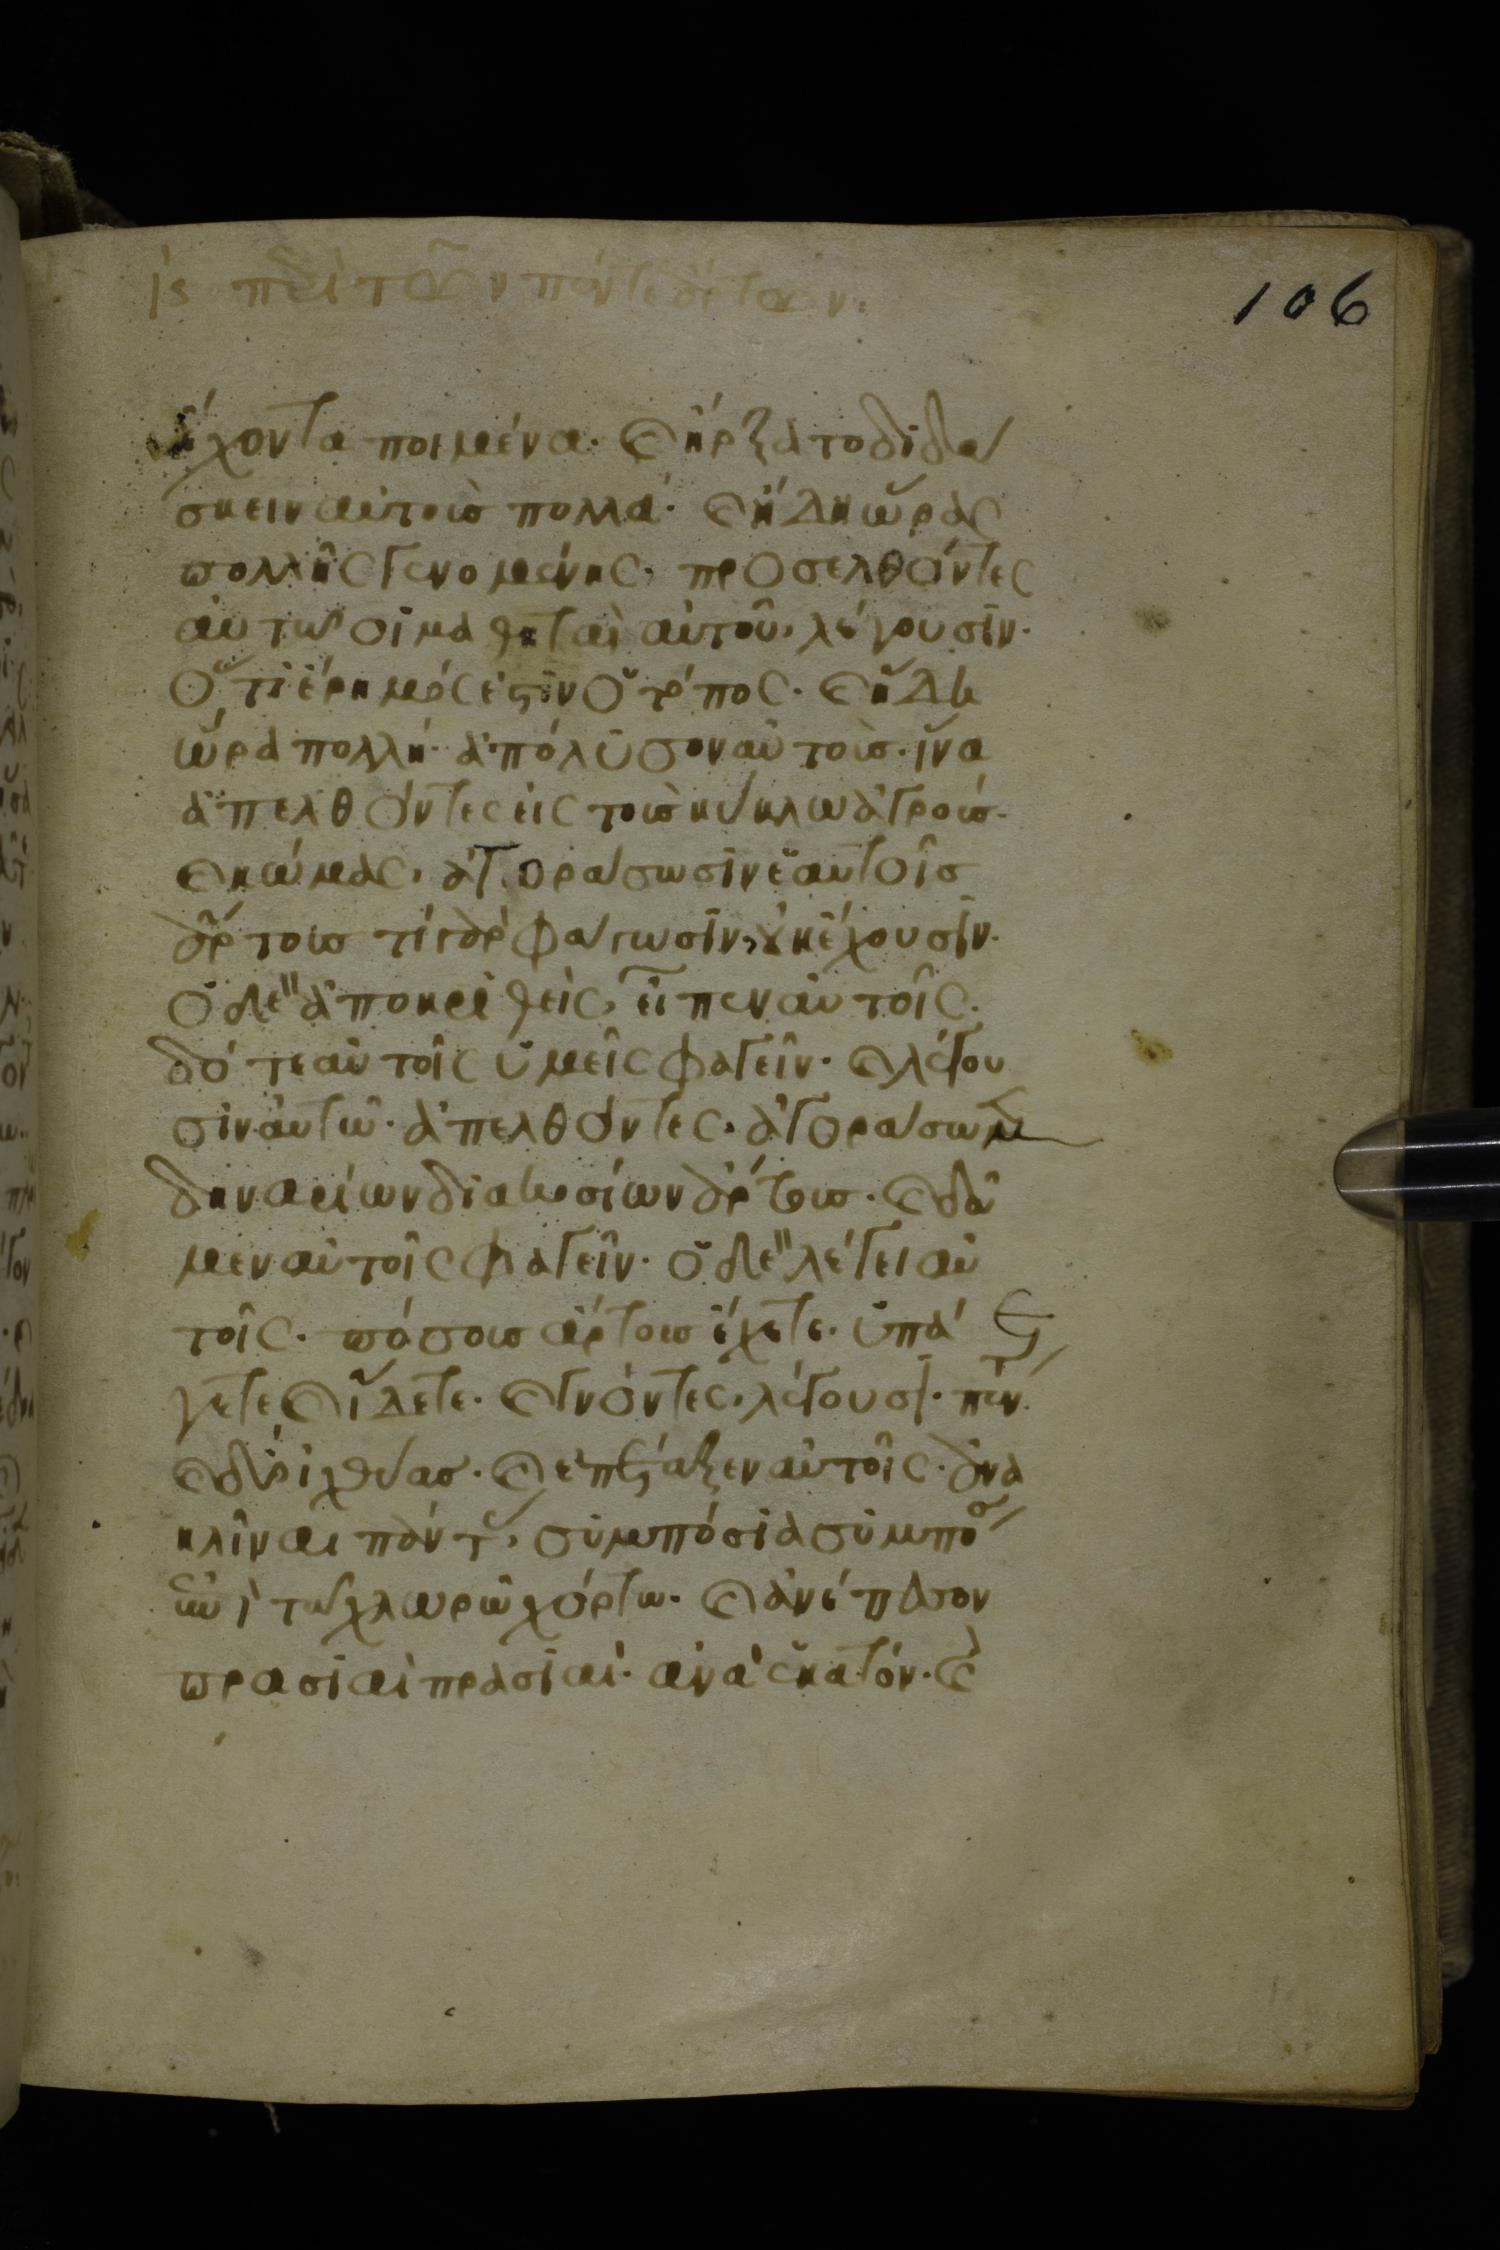 ιϛ περὶ τῶν πέντε ἄρτων:
106
ἔχοντα ποιμένα. κ ἤρξατο διδά
σκειν αὐτοὺς πολλά. κ ἤδη ὥρας
πολλῆς γενομένης, προσελθόντες
αὐτῶ οἱ μαθηταὶ αὐτοῦ, λέγουσιν.
ὅτι ἔρημός ἐστιν ὁ τόπος. κ ἤδη
ὥρα πολλή. ἀπόλυσον αὐτούς. ἵνα
ἀπελθόντες εἰς τοὺς κύκλω ἀγρούς.
κ κώμας, ἀγοράσωσιν ἑαυτοῖς
ἄρτους τί γὰρ φάγωσιν, οὐκ ἔχουσιν.
ὁ δὲ ἀποκριθεὶς, εἶπεν αὐτοῖς.
δότε αὐτοῖς ὑμεῖς φαγεῖν. κ λέγου
σιν αὐτῶ. ἀπελθόντες, ἀγοράσωμεν
δηναρίων διακοσίων ἄρτους. κ δῶ
μεν αὐτοῖς φαγεῖν. ὁ δὲ λέγει αὐ
τοῖς. πόσους ἄρτους ἔχετε. ὑπά
γετε κ ἴδετε. κ γνόντες, λέγουσι. πέντε.
κ δύο ἰχθύας. κ ἐπέταξεν αὐτοῖς. ἀνα
κλῖναι πάντας, συμπόσια συμπόσια
ἐπὶ τῶ χλωρῶ χόρτω. κ ἀνέπεσον
πρασιαὶ πρασιαὶ. ἀνὰ ἑκατόν. κ